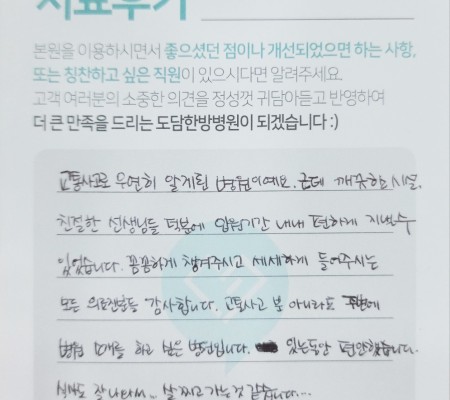 치료후기
본원을 이용하시면서 좋으셨던 점이나 개선되었으면 하는 사항,
또는 칭찬하고 싶은 직원이 있으시다면 알려주세요.
고객 여러분의 소중한 의견을 정성껏 귀담아듣고 반영하여
더 큰 만족을 드리는 도담한방병원이 되겠습니다 :)
교통사고로 우연히 알게된 병원이에요. 근데 깨끗한 시설,
친절한 선생님들 덕분에 입원기간 내내 편하게 지낼수
있었습니다. 꼼꼼하게 챙겨주시고 세세하게 들어주시는
모든 의료진분들 감사합니다. 교통사고 뿐 아니라도 주변에
병원 소개를 하고 싶은 병원입니다. 있는동안 편안했습니다.
식사도 잘 나와서... 살 찌고 가는것 같습니다...